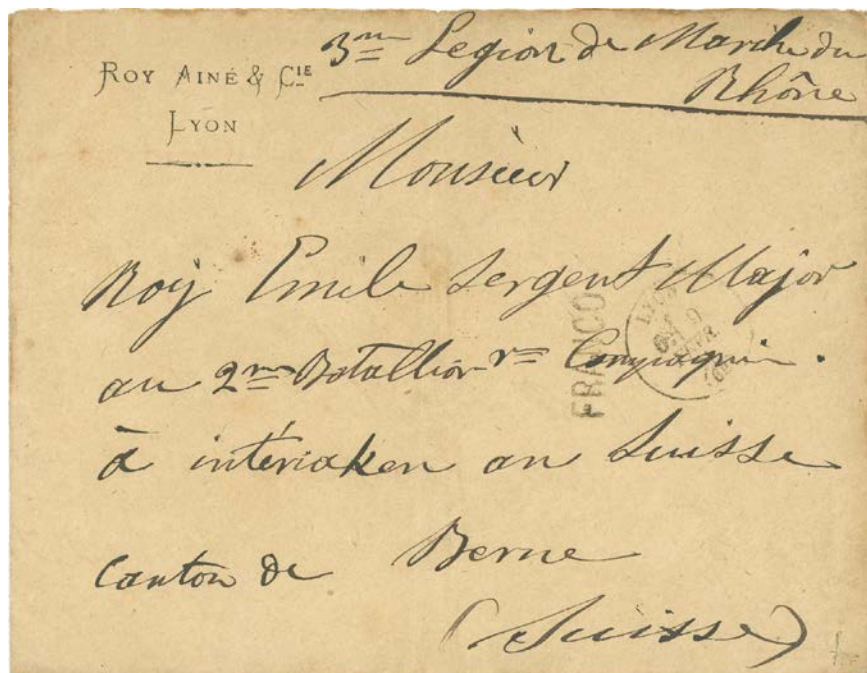 ROY AINÉ & CIE
LYON
3me Legion de Marche du
Rhône
Monsieur
Roy Emile Sergent Major
au 2me Batallion 1re Compagnie.
à interiaken an Suisse
Canton de Berne
(Suisse)
FRANCO
LYON